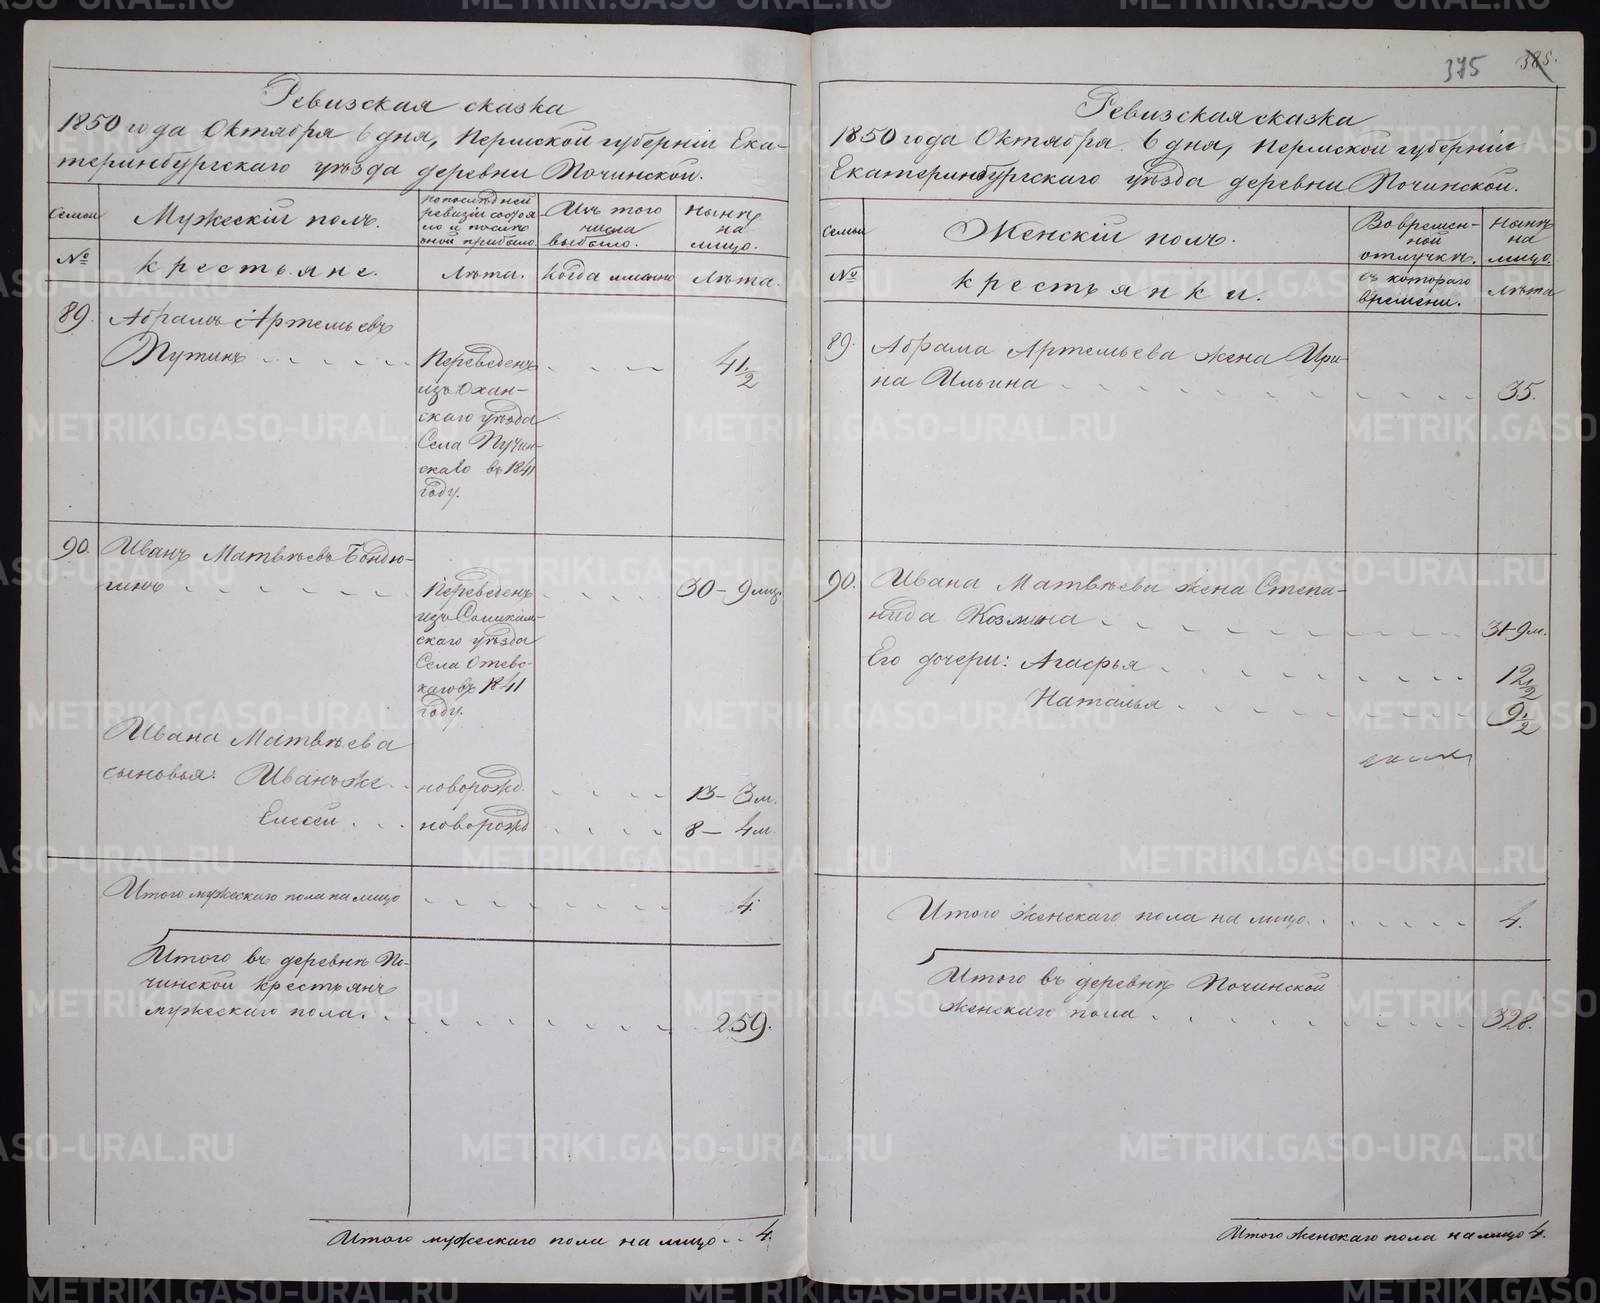 375 385.
Ревизская сказка
1850 года Октября 6 дня, Пермской губернiи Ека-
теринбургскаго уѣзда деревни Починской.
Семьи
Мужескiй полъ.
По послѣдней
ревизiи состоя
ло и послѣ
оной прибыло.
Изъ того
числа
выбыло.
Нынѣ
на
лицо.
№
крестьяне.
Лѣта.
Когда именно
Лѣта.
89. Абрамъ Артемьевъ
Путинъ
Переведенъ
изъ Охан-
скаго уѣзда
Села Пучин-
скаго въ 1841
году.
41 1/2
90. Иванъ Матвѣевъ Бондю-
гинъ
Переведенъ
изъ Соликам-
скаго уѣзда
Села
скаго въ 1841
году.
30 - 9 мц.
Ивана Матвѣева
сыновья: Иванъ же новорожд. 13 - 3 м.
Елисей новорожд 8 - 4 м
Итого мужескаго пола на лицо 4.
Итого въ деревнѣ По-
чинской крестьянъ
мужескаго пола. 259.
Итого мужескаго пола на лицо 4.
Ревизская сказка
1850 года Октября 6 дня, Пермской губернiи
Екатеринбургскаго уѣзда деревни Починской.
Семьи
Женскiй полъ.
Во времен-
ной
отлучкѣ.
Нынѣ
на
лицо.
№
крестьянки.
съ котораго
времени.
Лѣта
89. Абрама Артемьева жена Ири-
на Ильина 35.
90. Ивана Матвѣева жена Степа-
нида Козмина 31 - 9 м.
Его дочери: Агафья 12 1/2
Наталья 9 1/2
Итого женскаго пола на лицо. 4.
Итого въ деревнѣ Починской
женскаго пола 328.
Итого женскаго пола на лицо 4.
METRIKI.GASO-URAL.RU